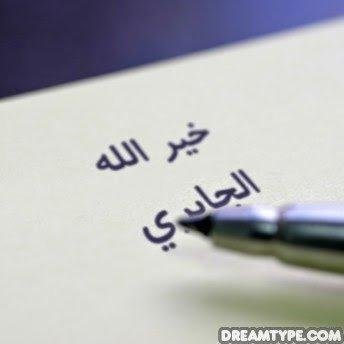 خير الله
الجابري
DREAMTYPE.COM